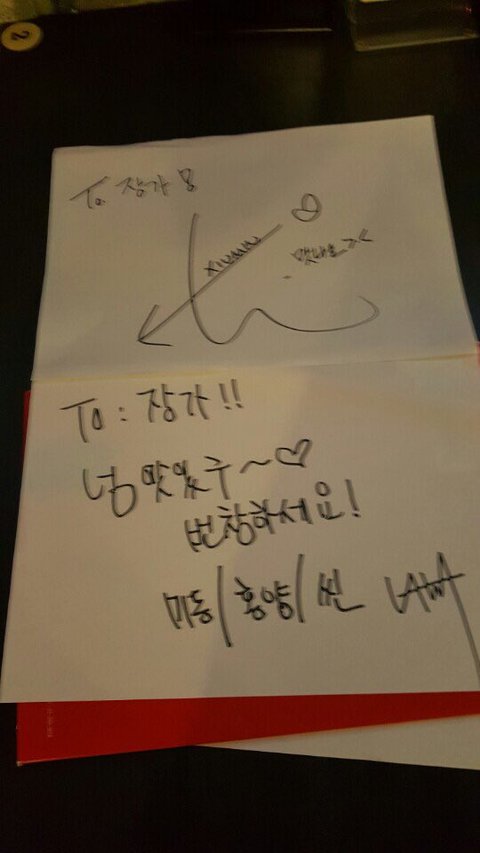 2
To 장가용
XIUMIN
맛나요 ><
To : 장가!!
넘 맛있구~♡
번창하세요!
미동/홍양/씬